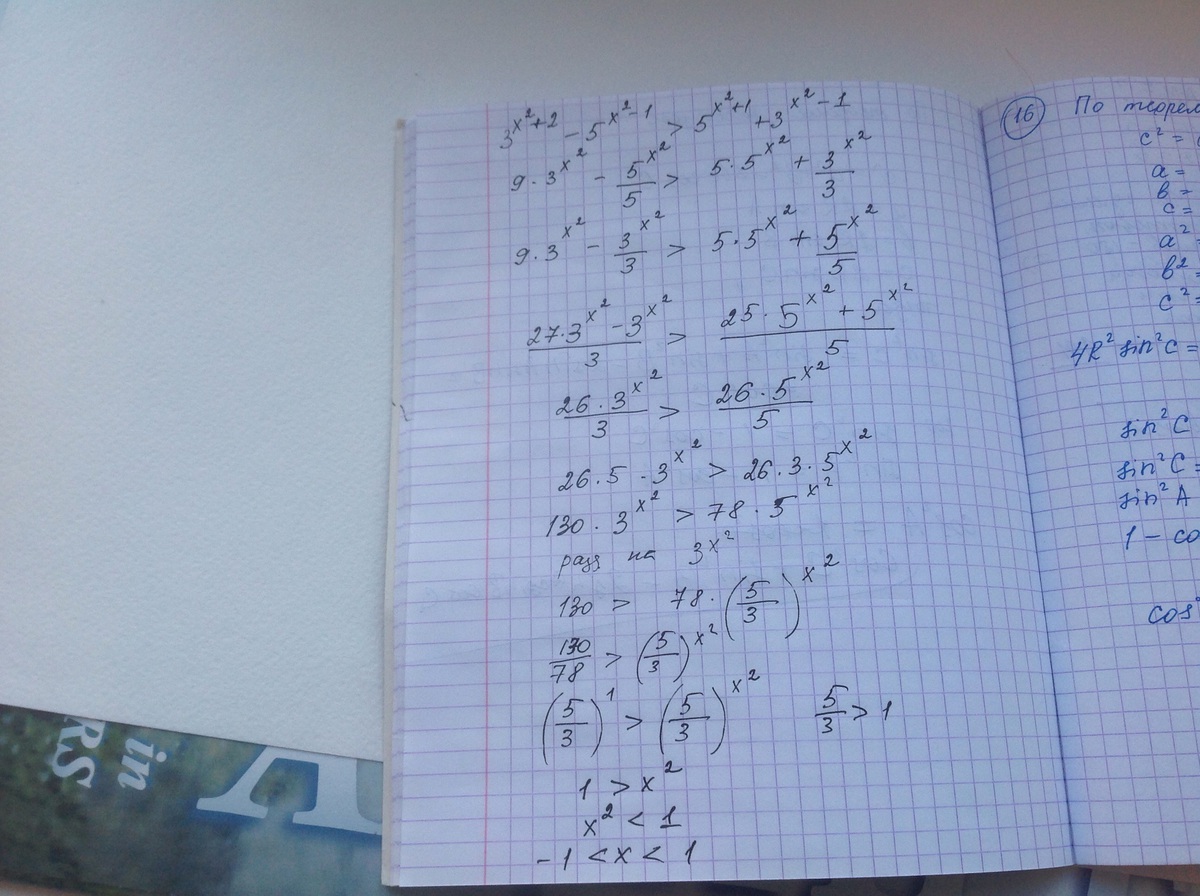 3^(x²+2) − 5^(x²−1) > 5^(x²+1) + 3^(x²−1)
9·3^(x²) − 5^(x²)/5 > 5·5^(x²) + 3^(x²)/3
9·3^(x²) − 3^(x²)/3 > 5·5^(x²) + 5^(x²)/5
(27·3^(x²) − 3^(x²))/3 > (25·5^(x²) + 5^(x²))/5
26·3^(x²)/3 > 26·5^(x²)/5
26·5·3^(x²) > 26·3·5^(x²)
130·3^(x²) > 78·5^(x²)
разд на 3^(x²)
130 > 78·(5/3)^(x²)
130/78 > (5/3)^(x²)
(5/3)^1 > (5/3)^(x²) 5/3 > 1
1 > x²
x² < 1
−1 < x < 1
16 По теорем
c² =
a =
b =
c =
a² =
b² =
c² =
4R² sin²C =
sin²C
sin²C =
sin²A
1 − co
cos
in
RS